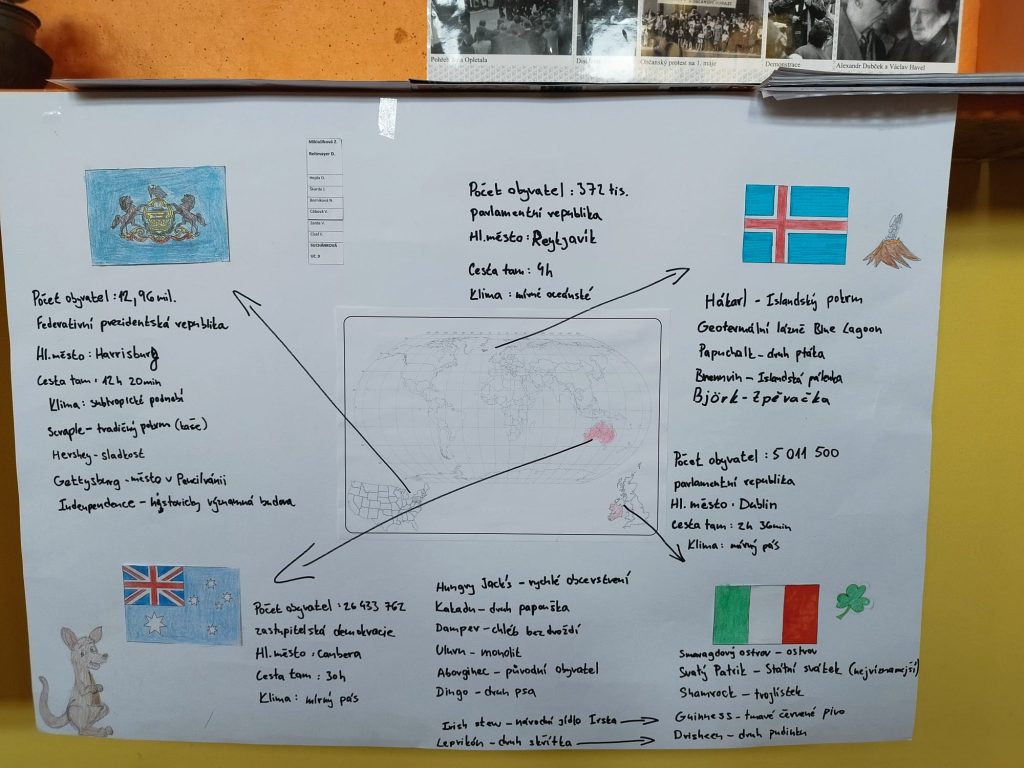 Občanský protest na 1. máje
Demonstrace
Alexandr Dubček a Václav Havel
Mikluščková Z.
Rottmayer D.
SUCHÁNKOVÁ
UČ. D
Počet obyvatel : 12,96 mil.
Federativní prezidentská republika
Hl. město : Harrisburg
Cesta tam : 12h 20min
Klima : subtropické podnebí
Scraple - tradičný pokrm (kaše)
Hershey - sladkost
Gettysburg - město v Pencilvánii
Independence - historicky významná budova
Počet obyvatel : 372 tis.
parlamentní republika
Hl. město : Reykjavík
Cesta tam : 4h
Klima : mírné oceánské
Hákarl - Islandský pokrm
Geotermální lázně Blue Lagoon
Papuchalk - druh ptáka
Brennvin - Islandská pálenka
Björk - Zpěvačka
Počet obyvatel : 5 011 500
parlamentní republika
Hl. město : Dublin
Cesta tam : 2h 36min
Klima : mírný pás
Počet obyvatel : 26 433 762
zastupitelská demokracie
Hl. město : Canbera
Cesta tam : 30h
Klima : mírný pás
Hungry Jack's - rychlé občerstvení
Kakadu - druh papouška
Damper - chléb bez droždí
Uluru - monolit
Aboriginec - původní obyvatel
Dingo - druh psa
Irish stew - národní jídlo Irska
Leprikón - druh skřítka
Smaragdový ostrov - ostrov
Svatý Patrik - Státní svátek (nejvíznamejší)
Shamrock - trojlístek
Guinness - tmavé červené pivo
Drisheen - druh pudinku